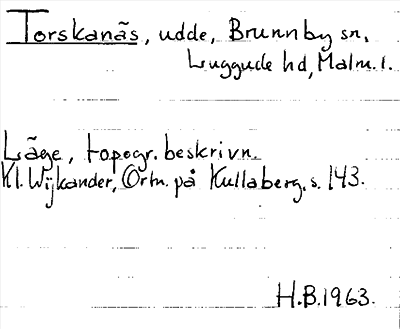 Torskanäs, udde, Brunnby sn,
Luggude hd, Malm. l.
Läge, topogr. beskrivn.
Kl. Wijkander, Ortn. på Kullaberg, s. 143.
H.B. 1963.